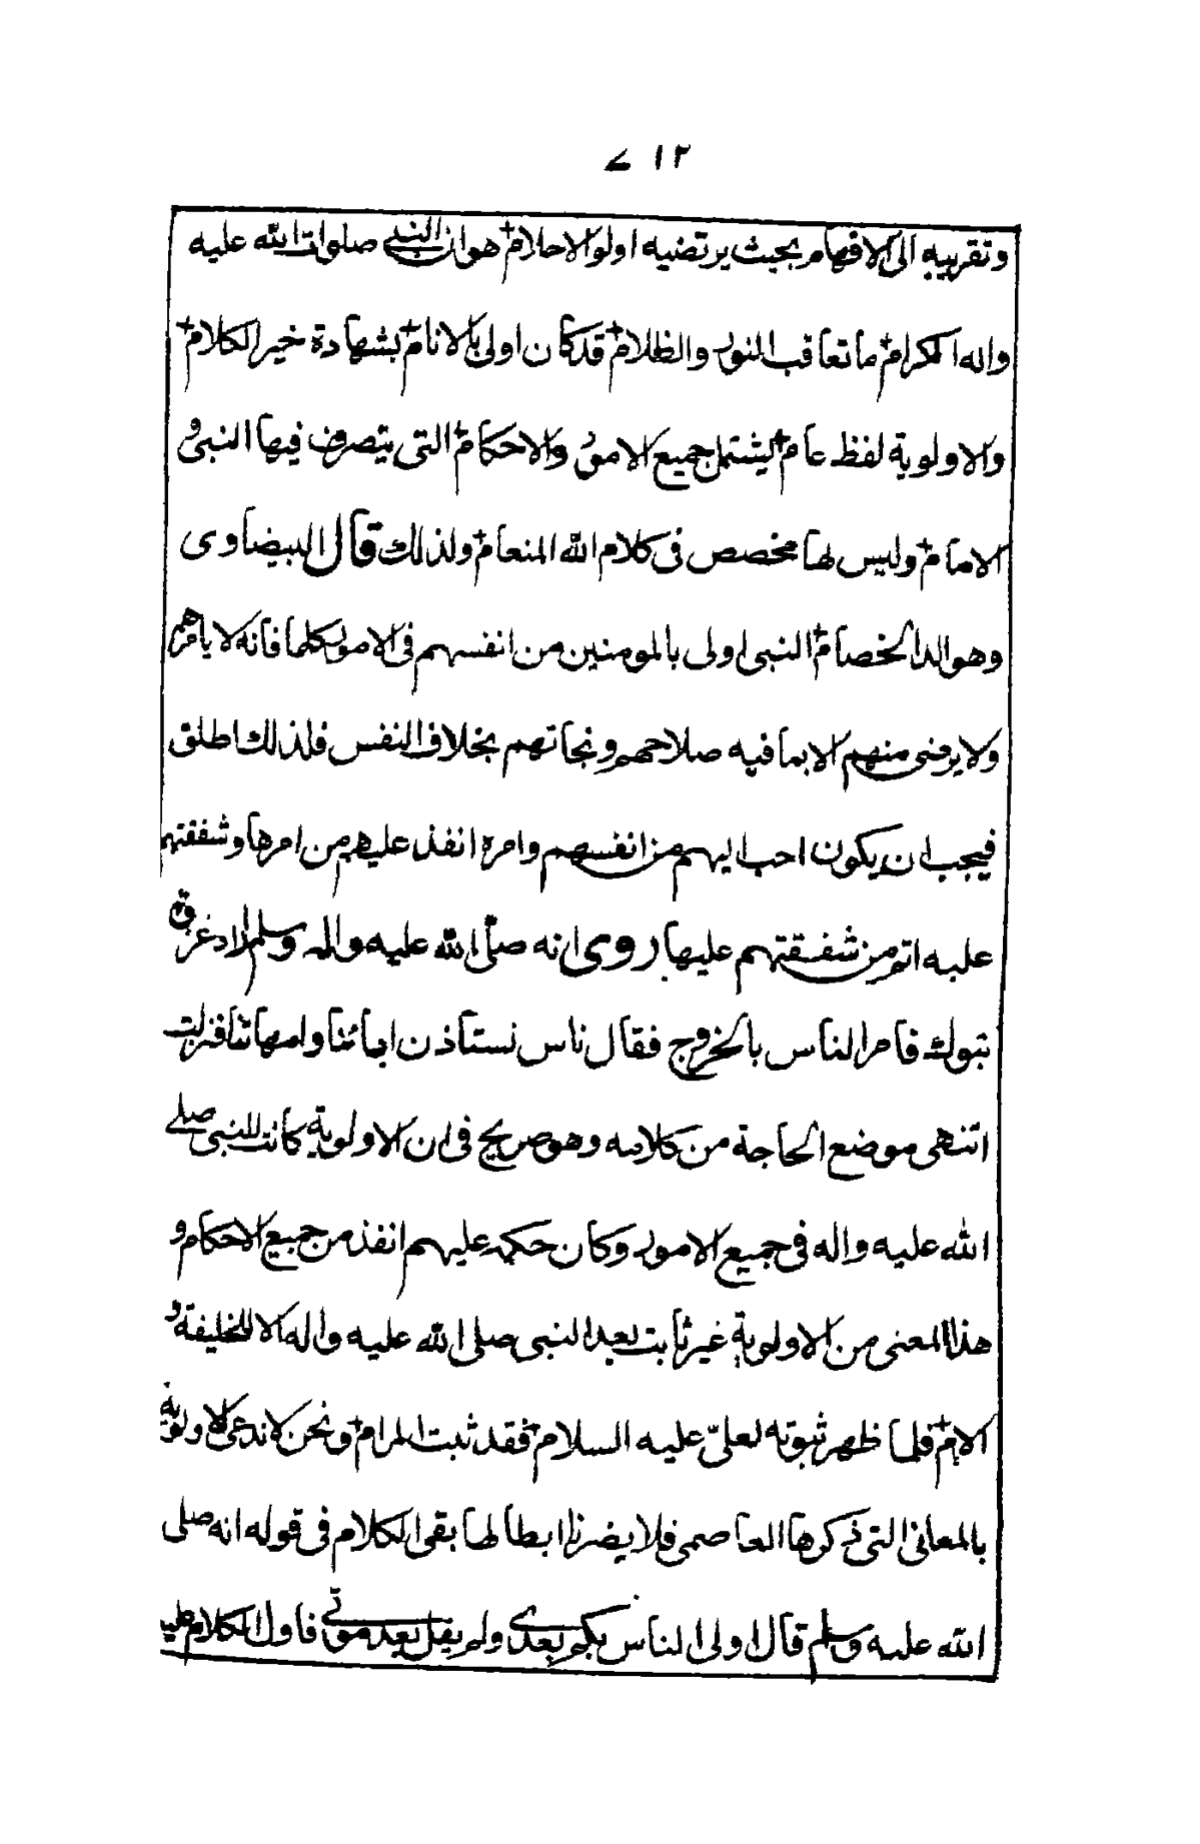 ٧١٢
وتقريبه الى الافهام بحيث يرتضيه اولو الاحلام هو ان النبي صلوات الله عليه
واله الكرام ما تعاقب النور والظلام قد كان اولى بالانام بشهادة خير الكلام
والاولوية لفظ عام ليشتمل جميع الامور والاحكام التى يتصرف فيها النبى و
الامام وليس لها مخصص فى كلام الله المنعام ولذلك قال البيضاوى
وهو الد الخصام النبى اولى بالمومنين من انفسهم فى الامور كلها فانه لا يامرهم
ولا يرضى منهم الا بما فيه صلاحهم ونجاتهم بخلاف النفس فلذلك اطلق
فيجب ان يكون احب اليهم من انفسهم وامره انفذ عليهم من امرها وشفقتهم
عليه اتم من شفقتهم عليها روى انه صلى الله عليه واله وسلم اراد غزوة
تبوك فامر الناس بالخروج فقال ناس نستاذن اباءنا وامهاتنا فنزلت
انتهى موضع الحاجة من كلامه وهو صريح فى ان الاولوية كانت للنبى صلى
الله عليه واله فى جميع الامور وكان حكمه عليهم انفذ من جميع الاحكام و
هذا المعنى من الاولوية غير ثابت بعد النبى صلى الله عليه واله الا للخليفة و
الامام فلما ظهر ثبوته لعلىّ عليه السلام فقد ثبت المرام ونحن لا ندعى الاولوية
بالمعانى التى ذكرها العاصمى فلا يضرنا ابطالها بقى الكلام فى قوله انه صلى
الله عليه وسلم قال اولى الناس بكم بعدى ولم يقل بعد موتى فاول الكلام عليه